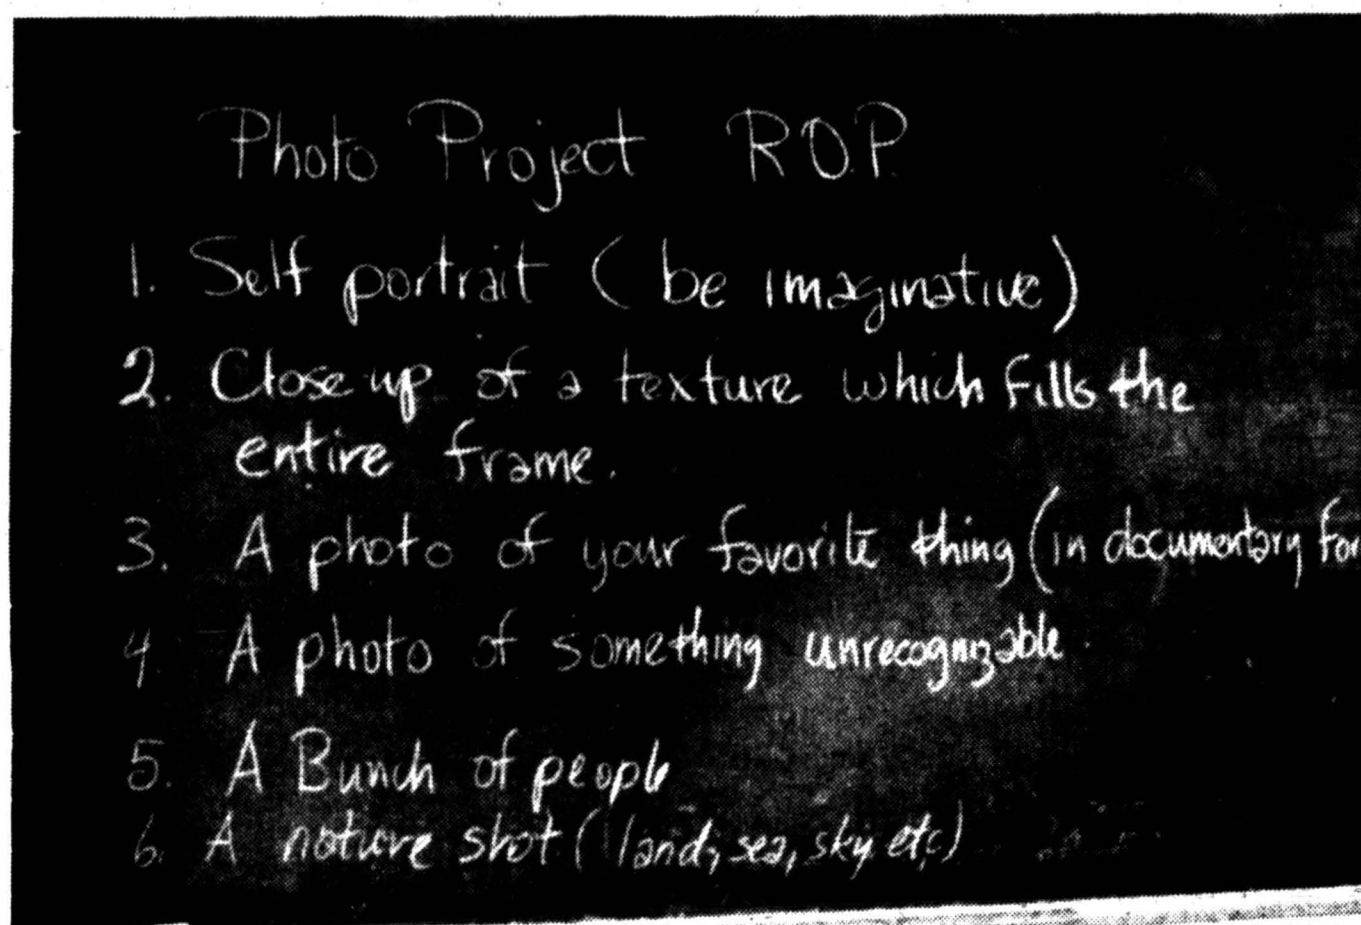 Photo Project R.O.P.
1. Self portrait (be imaginative)
2. Close-up of a texture which fills the
entire frame.
3. A photo of your favorite thing (in documentary for
4. A photo of something unrecognizable.
5. A Bunch of people
6. A nature shot (land, sea, sky etc)